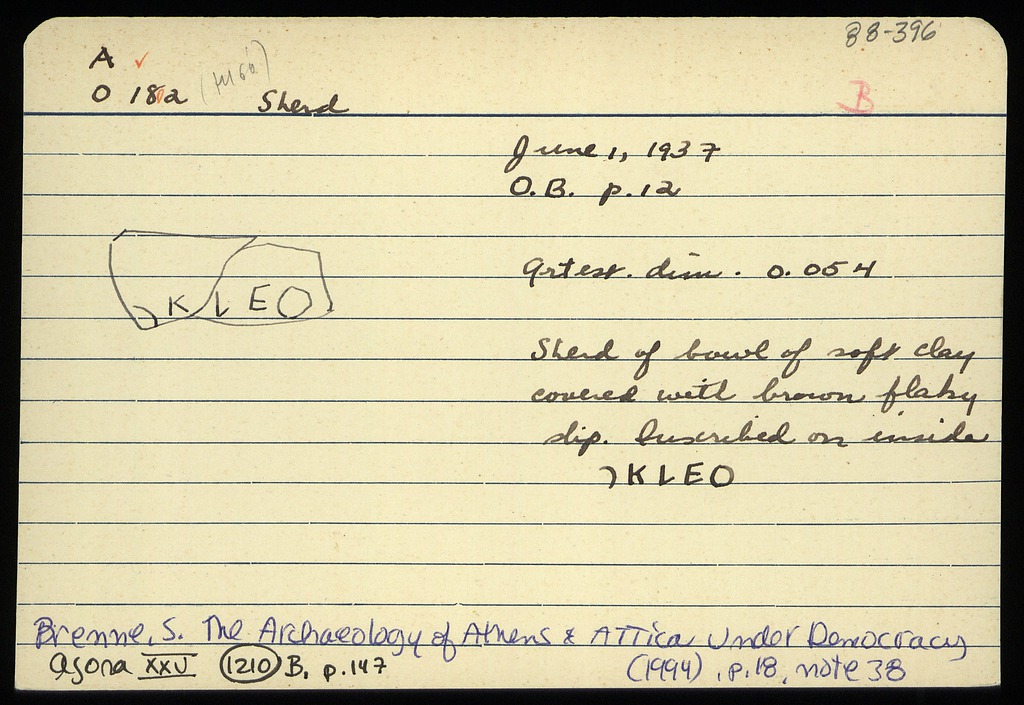 88-396
A ✓
O 182 Sherd
B
June 1, 1937
O.B. p. 12
Grtest. dim. 0.054
)KLEO
Sherd of bowl of soft clay
covered with brown flaky
slip. Inscribed on inside
)KLEO
Brenne, S. The Archaeology of Athens & Attica Under Democracy
(1994), p.18, note 38
Agora XXV 1210 B, p. 147